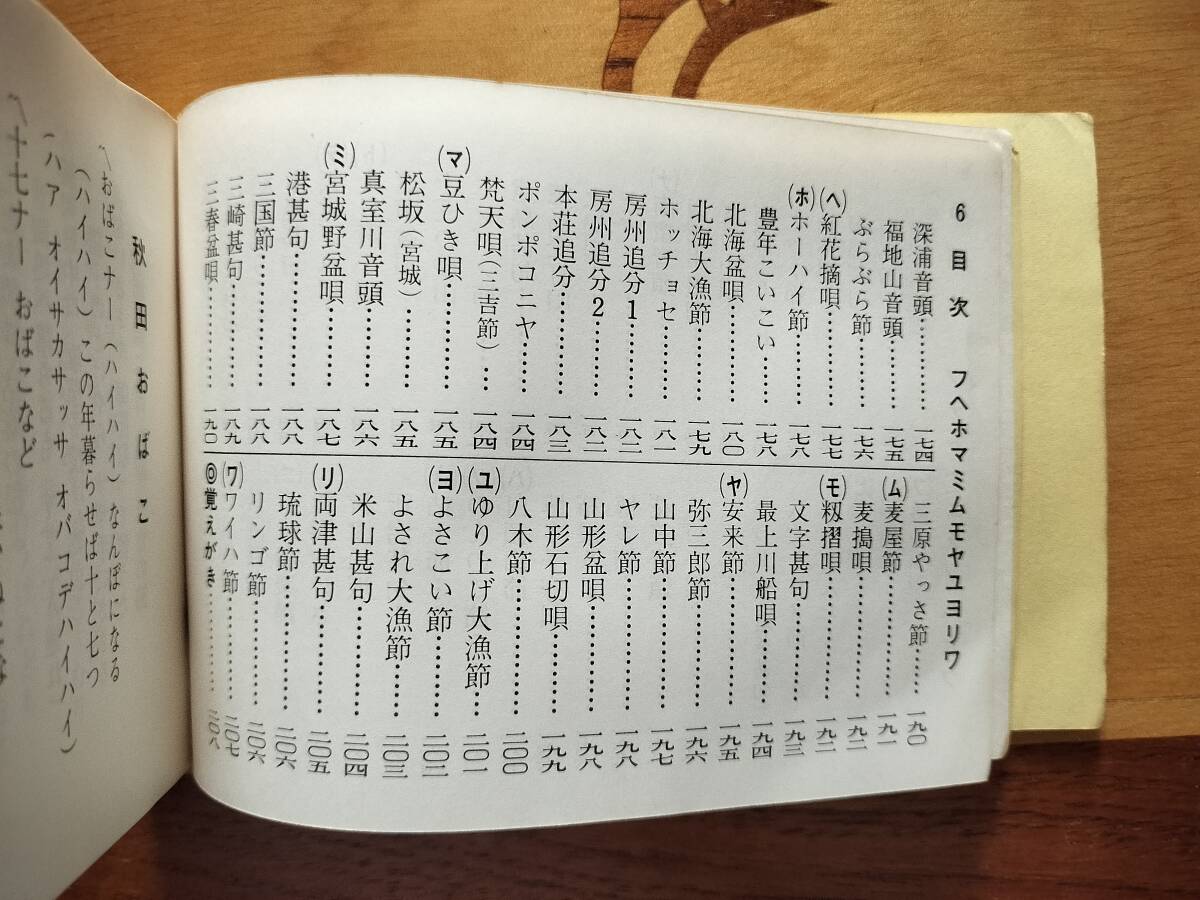 6 目次 フヘホマミムモヤユヨリワ
深浦音頭…………一七四
福地山音頭…………一七五
ぶらぶら節…………一七六
(ヘ)紅花摘唄…………一七七
(ホ)ホーハイ節…………一七八
豊年こいこい…………一七八
北海盆唄…………一八〇
北海大漁節…………一七九
ホッチョセ…………一八一
房州追分1…………一八二
房州追分2…………一八二
本荘追分…………一八三
ポンポコニヤ…………一八四
梵天唄(三吉節)…一八四
(マ)豆ひき唄…………一八五
松坂(宮城)…………一八五
真室川音頭…………一八六
(ミ)宮城野盆唄…………一八七
港甚句…………一八八
三国節…………一八八
三崎甚句…………一八九
三春盆唄…………一九〇
三原やっさ節…………一九〇
(ム)麦屋節…………一九一
麦搗唄…………一九二
(モ)籾摺唄…………一九二
文字甚句…………一九三
最上川船唄…………一九四
(ヤ)安来節…………一九五
弥三郎節…………一九六
山中節…………一九七
ヤレ節…………一九八
山形盆唄…………一九八
山形石切唄…………一九九
八木節…………二〇〇
(ユ)ゆり上げ大漁節…二〇一
(ヨ)よさこい節…………二〇二
よされ大漁節…………二〇三
米山甚句…………二〇四
(リ)両津甚句…………二〇五
琉球節…………二〇六
リンゴ節…………二〇六
(ワ)ワイハ節…………二〇七
◎覚えがき…………二〇八
秋田おばこ
〽おばこナー(ハイハイ)なんぼになる
(ハイハイ)この年暮らせば十と七つ
(ハア オイサカサッサ オバコデハイハイ)
〽十七ナー おばこなど